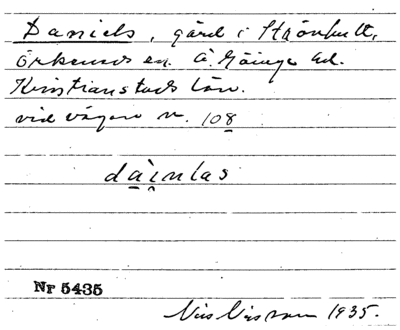 Daniels, gård i Strönhult,
Örkeneds sn. Ö. Göinge hd.
Kristianstads län.
vid vägen nr. 108
dài̯nlas
Nr 5435
Nils Nilsson 1935.